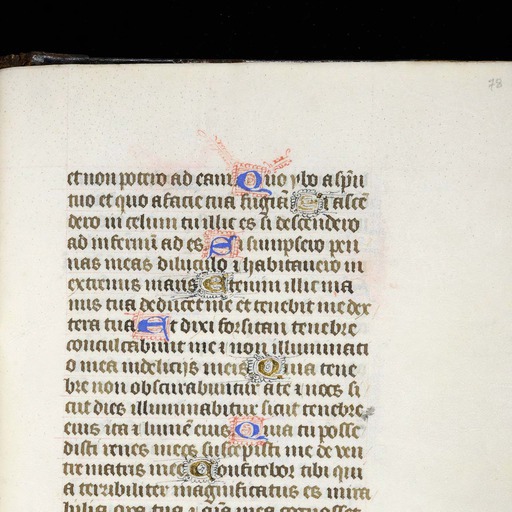 78
et non potero ad eam Quo ybo a spũ
tuo et quo a facie tua fugiã Si ascẽ
dero in celum tu illic es si descendero
ad infernũ ad es Si sumpsero pen
nas meas diluculo ⁊ habitauero in
extremis maris Etenim illic ma
nus tua deducet me et tenebit me dex
tera tua Et dixi forsitan tenebre
conculcabunt me ⁊ non illuminati
o mea indelicijs meis Quia tene
bre non obscurabuntur a te ⁊ nocs si
cut dies illuminabitur sicut tenebre
eius ita ⁊ lumẽ eius Quia tu posse
disti renes meos suscepisti me de ven
tre matris mee Confitebor tibi qui
a terribiliter magnificatus es mira
bilia opa tua ⁊ aĩa mea cognoscet